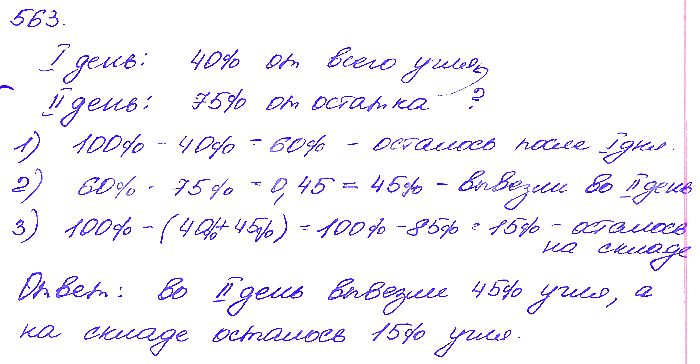 563.
I день: 40% от всего угля,
II день: 75% от остатка ?
1) 100% - 40% = 60% - осталось после I дня.
2) 60% · 75% = 0,45 = 45% - вывезли во II день
3) 100% - (40% + 45%) = 100% - 85% = 15% - осталось
на складе
Ответ: во II день вывезли 45% угля, а
на складе осталось 15% угля.